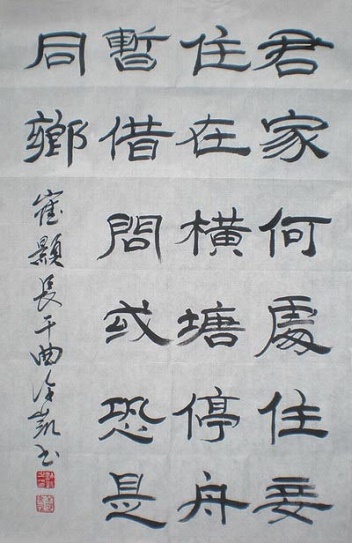 君家何處住妾
住在横塘停舟
暫借問或恐是
同鄉
崔顥長干曲凱书